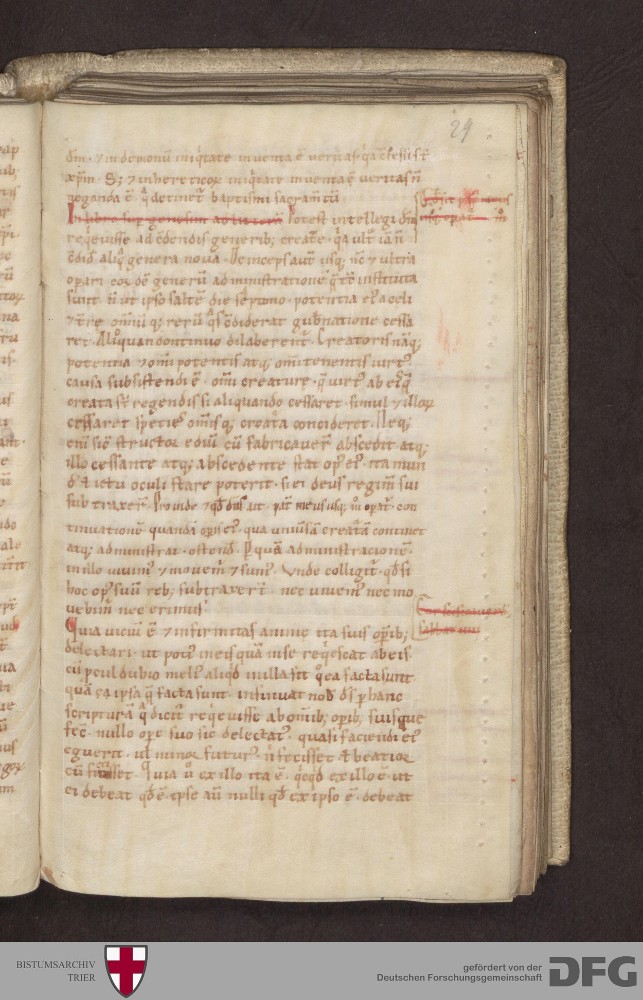 29
dm̄ · ⁊ in demonū iniq̇tate inuenta ē ueritas · q̇a c̄fessi st̄
xp̄m · S; ⁊ in hereticoꝝ iniq̇tate inuenta ē ueritas ñ
neganda ē q̇ detinet᷑ baptismi sacram̄tū
In libro sup genesim ad litterā Potest intellegi dm̄
req̇euisse ad c̄dendis generib; creatuꝛe · q̇a ult᷑ iā ñ
c̄did᷑ aliq̇ genera noua · Deinceps aut̄ usq; nc̄ ⁊ ultra
opari eoꝝdē generū administrationē q̄ tc̄ instituta
sunt ñ ut ipso saltē die septimo · potentia ei᷒ a celi
⁊ t̄re omniūq; rerū q̇s c̄diderat gub̄natione cessa
ret · Alioquin continuo dilaberent᷑ · Creatoris nāq;
potentia ⁊ omīpotentis atq; om̄itenentis uirt᷒
causa subsistendi ē · omī creature · q̄ uirt᷒ ab eis q̄
creata st̄ regendis si aliquando cessaret · simul ⁊ illoꝝ
cessaret speties om̄isq; creatura concideret · Neq;
eni sic̄ structoꝛ ediū cū fabricauer᷑ abscedit atq;
illo cessante atq; abscedente stat op᷒ ei᷒ · ita mun
d᷒ t̄ ictu oculi stare poterit · si ei deus regim̄ sui
subtraxer᷑ · Proinde ⁊ qd̄ dn̄s ait · pat᷑ meus usq; m̊ opat᷑ · con
tinuationē quandā opis ei᷒ · qua uniuersā creat̄ā continet
atq; administrat · ostend᷑ · P quā administracionē ·
in illo uiuim᷒ ⁊ mouem᷑ ⁊ sum᷒ · Unde colligit᷑ · qd̄ si
hoc op᷒ suū reb; subtraxerit · nec uiuem᷒ nec mo
uebim᷑ nec erimus
Quia uiciū ē ⁊ infirmitas anime ita suis opib;
delectari · ut poti᷒ in eis quā in se req̇escat ab eis ·
cū pcul dubio meli᷒ aliqd̄ in illa sit q̇ ea facta sunt
quā ea ipsa q̄ facta sunt · insinuat nob᷑ ds̄ p hanc
scripturā q̇ dicit᷑ req̇euisse ab omib; opib; suis que
fec̄ · nullo ope suo sic delectat᷒ · quasi faciendi ei᷒
eguerit · ul̄ minoꝛ futur᷒ · ñ fecisset t̄ beatioꝛ
cū fecisset · Quia u̇ ex illo ita ē · q̇cq̇d ex illo ē · ut
ei debeat qd̄ ē · ipse aū nulli qd̄ ex ipso ē · debeat
BISTUMSARCHIV
TRIER
gefördert von der
Deutschen Forschungsgemeinschaft
DFG